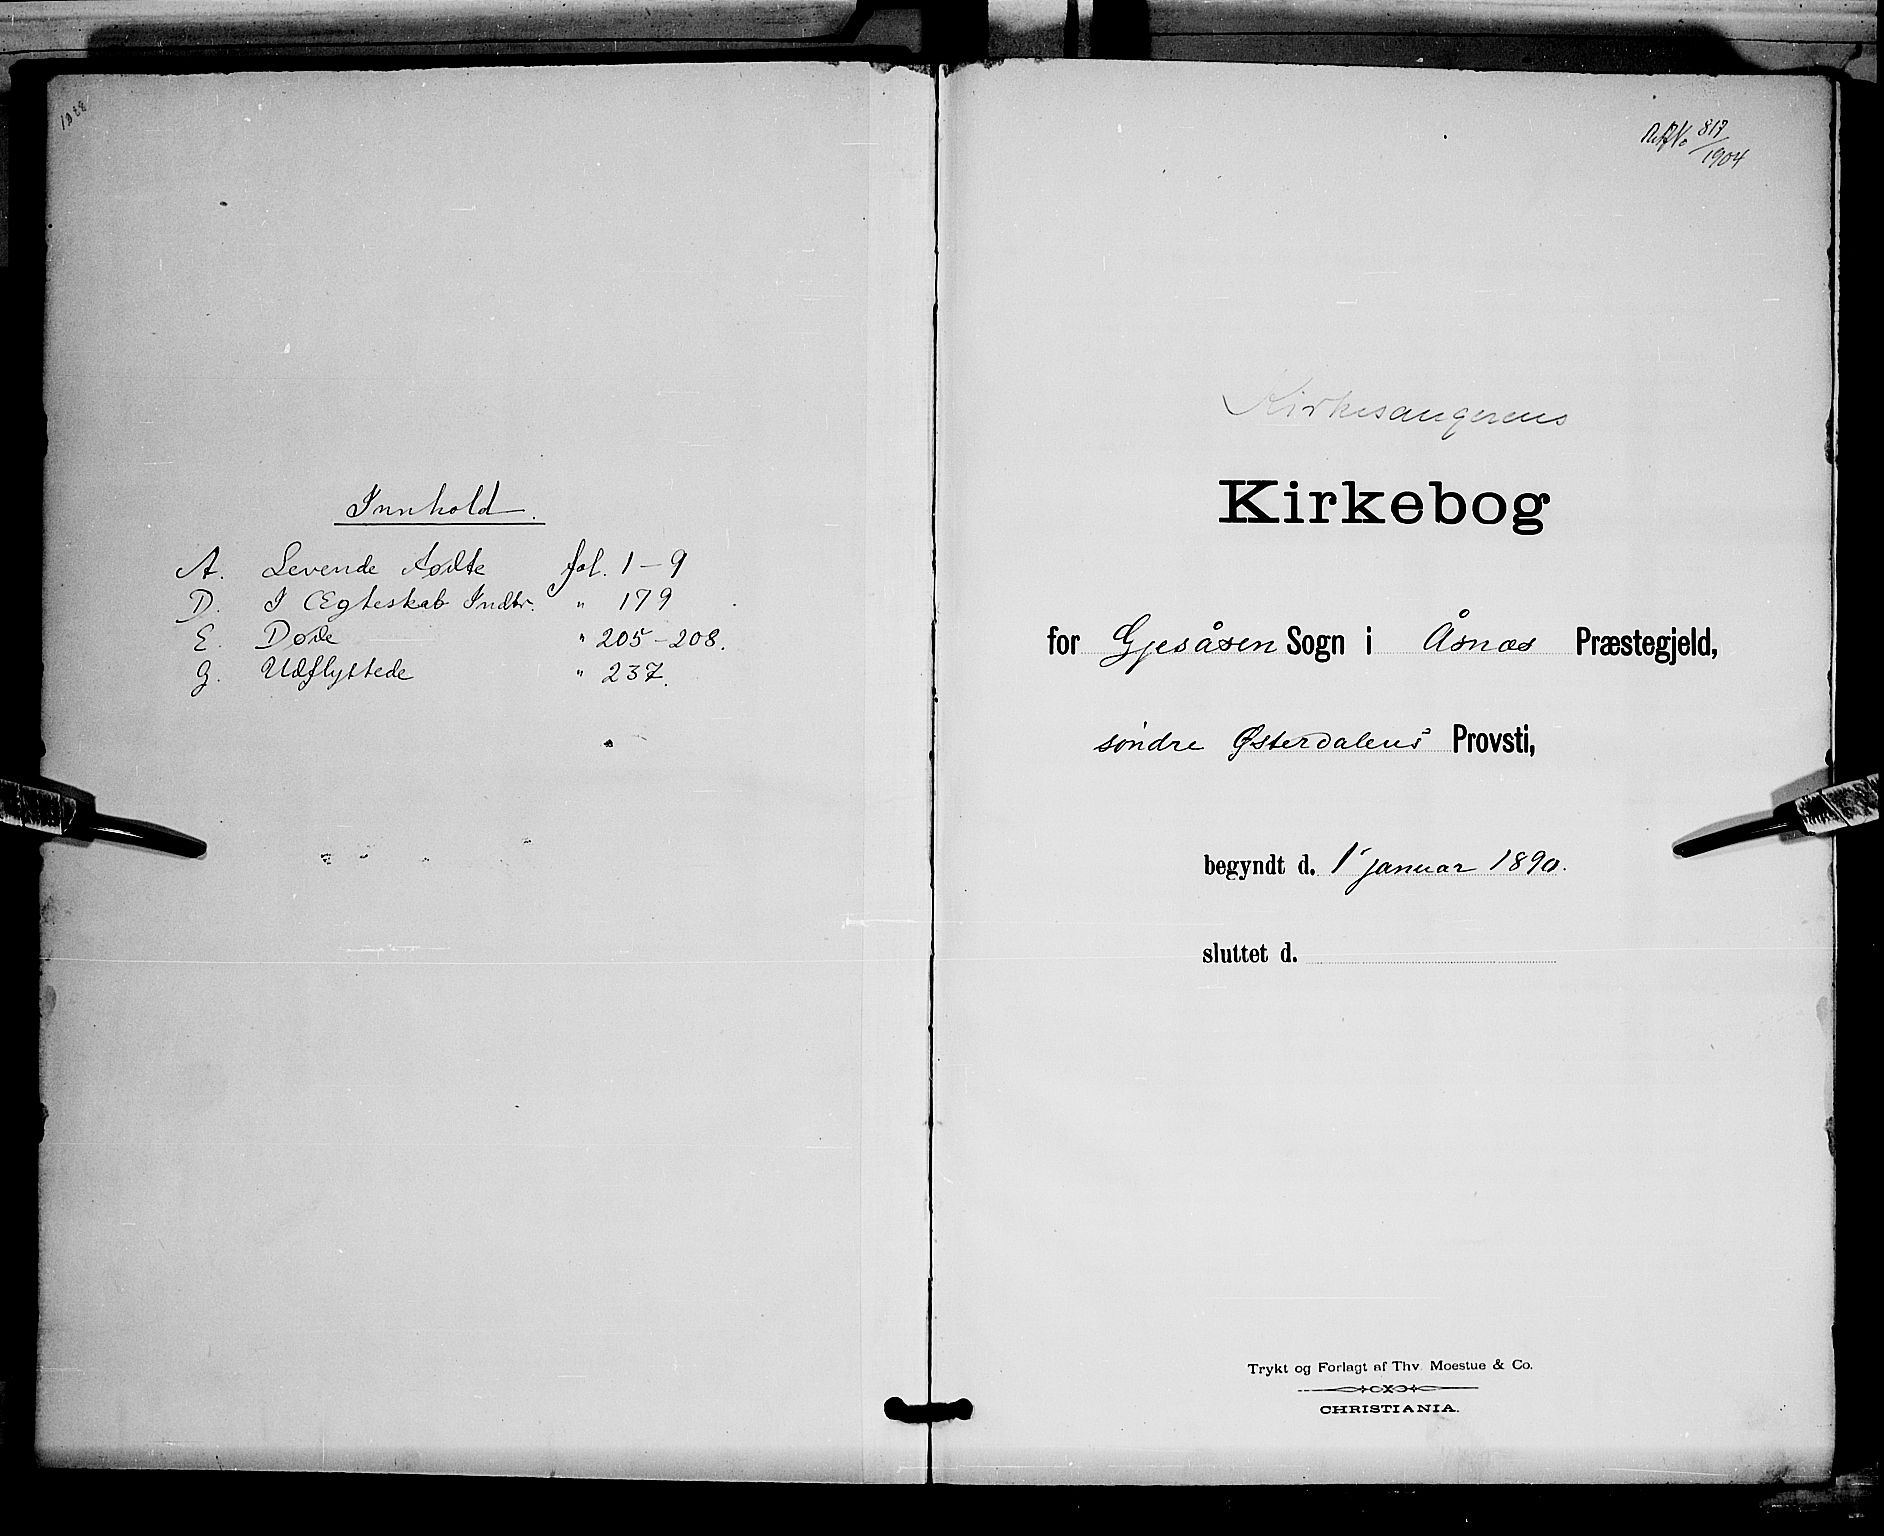 Innhold.
A. Levende fødte fol. 1 – 9
D. I Ægteskab Indtr. " 179
E. Døde " 205 – 208.
G. Udflyttede " 237.
817/1904
Kirkesangerens
Kirkebog
for Gjesåsen Sogn i Åsnæs Præstegjeld,
søndre Østerdalens Provsti,
begyndt d. 1 januar 1890.
sluttet d.
Trykt og Forlagt af Thv. Moestue & Co.
CHRISTIANIA.